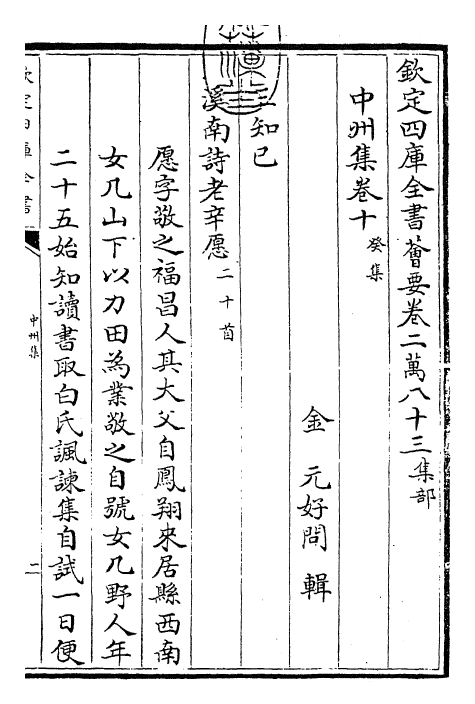 欽定四庫全書薈要卷二萬八十三集部
中州集卷十 癸集
金 元好問 輯
知己
溪南詩老辛愿 二十首
愿字敬之福昌人其大父自鳳翔來居縣西南
女几山下以力田為業敬之自號女几野人年
二十五始知讀書取白氏諷諫集自試一日便
欽定四庫全書
中州集